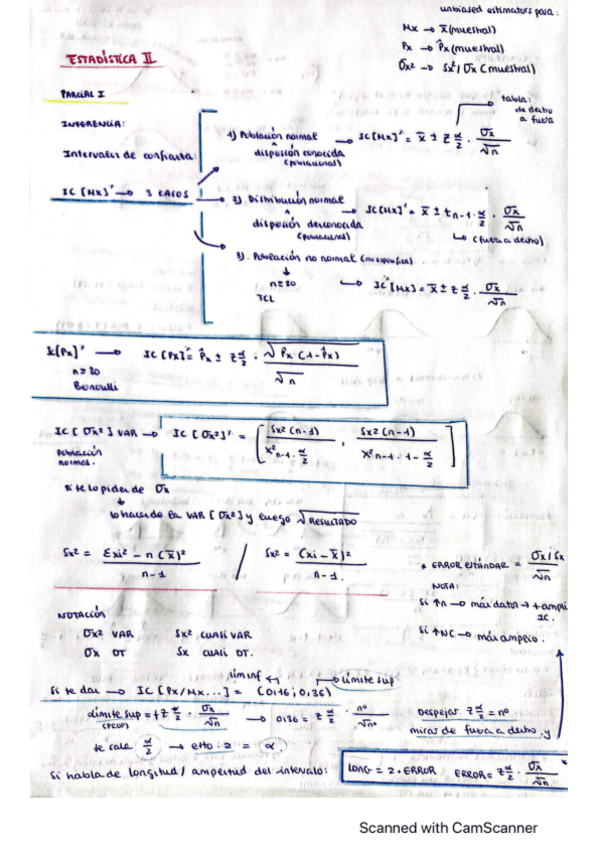 unbiased estimators para:
Mx → x̄ (muestral)
Px → P̂x (muestral)
σx² → Sx² / σx (muestral)
ESTADÍSTICA II
PARCIAL I
tabla:
de dentro
a fuera
INFERENCIA:
Intervalos de confianza:
IC [Mx]' → 3 CASOS
1) Población normal → IC [Mx]' = x̄ ± z α/2 · σx/√n
conocida
(poblacional)
2) Distribución normal → IC [Mx]' = x̄ ± t n-1 · α/2 · σx/√n
desconocida
(poblacional)
(fuera a dentro)
3). Población no normal
n≥30 → IC [Mx] = x̄ ± z α/2 · σx/√n
TCL
IC [Px]' → IC [Px]' = P̂x ± z α/2 · √P̂x (1-P̂x) / √n
n≥30
Bernoulli
IC [σx²] VAR → IC [σx²]' = [ Sx² (n-1) / X² n-1 · α/2 , Sx² (n-1) / X² n-1 · 1 - α/2 ]
Población
normal.
Si te lo piden de σx
lo haces de la VAR [σx²] y luego √RESULTADO
Sx² = Σxi² - n (x̄)² / n-1 / Sx² = (xi - x̄)² / n-1.
* ERROR ESTÁNDAR = σx / Sx / √n
NOTA:
Si ↑n → más datos → + ampli
IC.
Si ↑NC → más amplio.
NOTACIÓN
σx² VAR Sx² CUASI VAR
σx DT Sx CUASI DT.
lim inf límite sup
Si te dan → IC [Px/Mx...] = (0,16 ; 0,36)
límite sup = + z α/2 · σx/√n → 0,36 = z α/2 · nº/√nº
Despejar z α/2 = nº
miras de fuera a dentro y
te cale α/2 → esto · 2 = α.
Si habla de longitud / amplitud del intervalo:
LONG = 2 · ERROR ERROR = z α/2 · σx/√n
Scanned with CamScanner